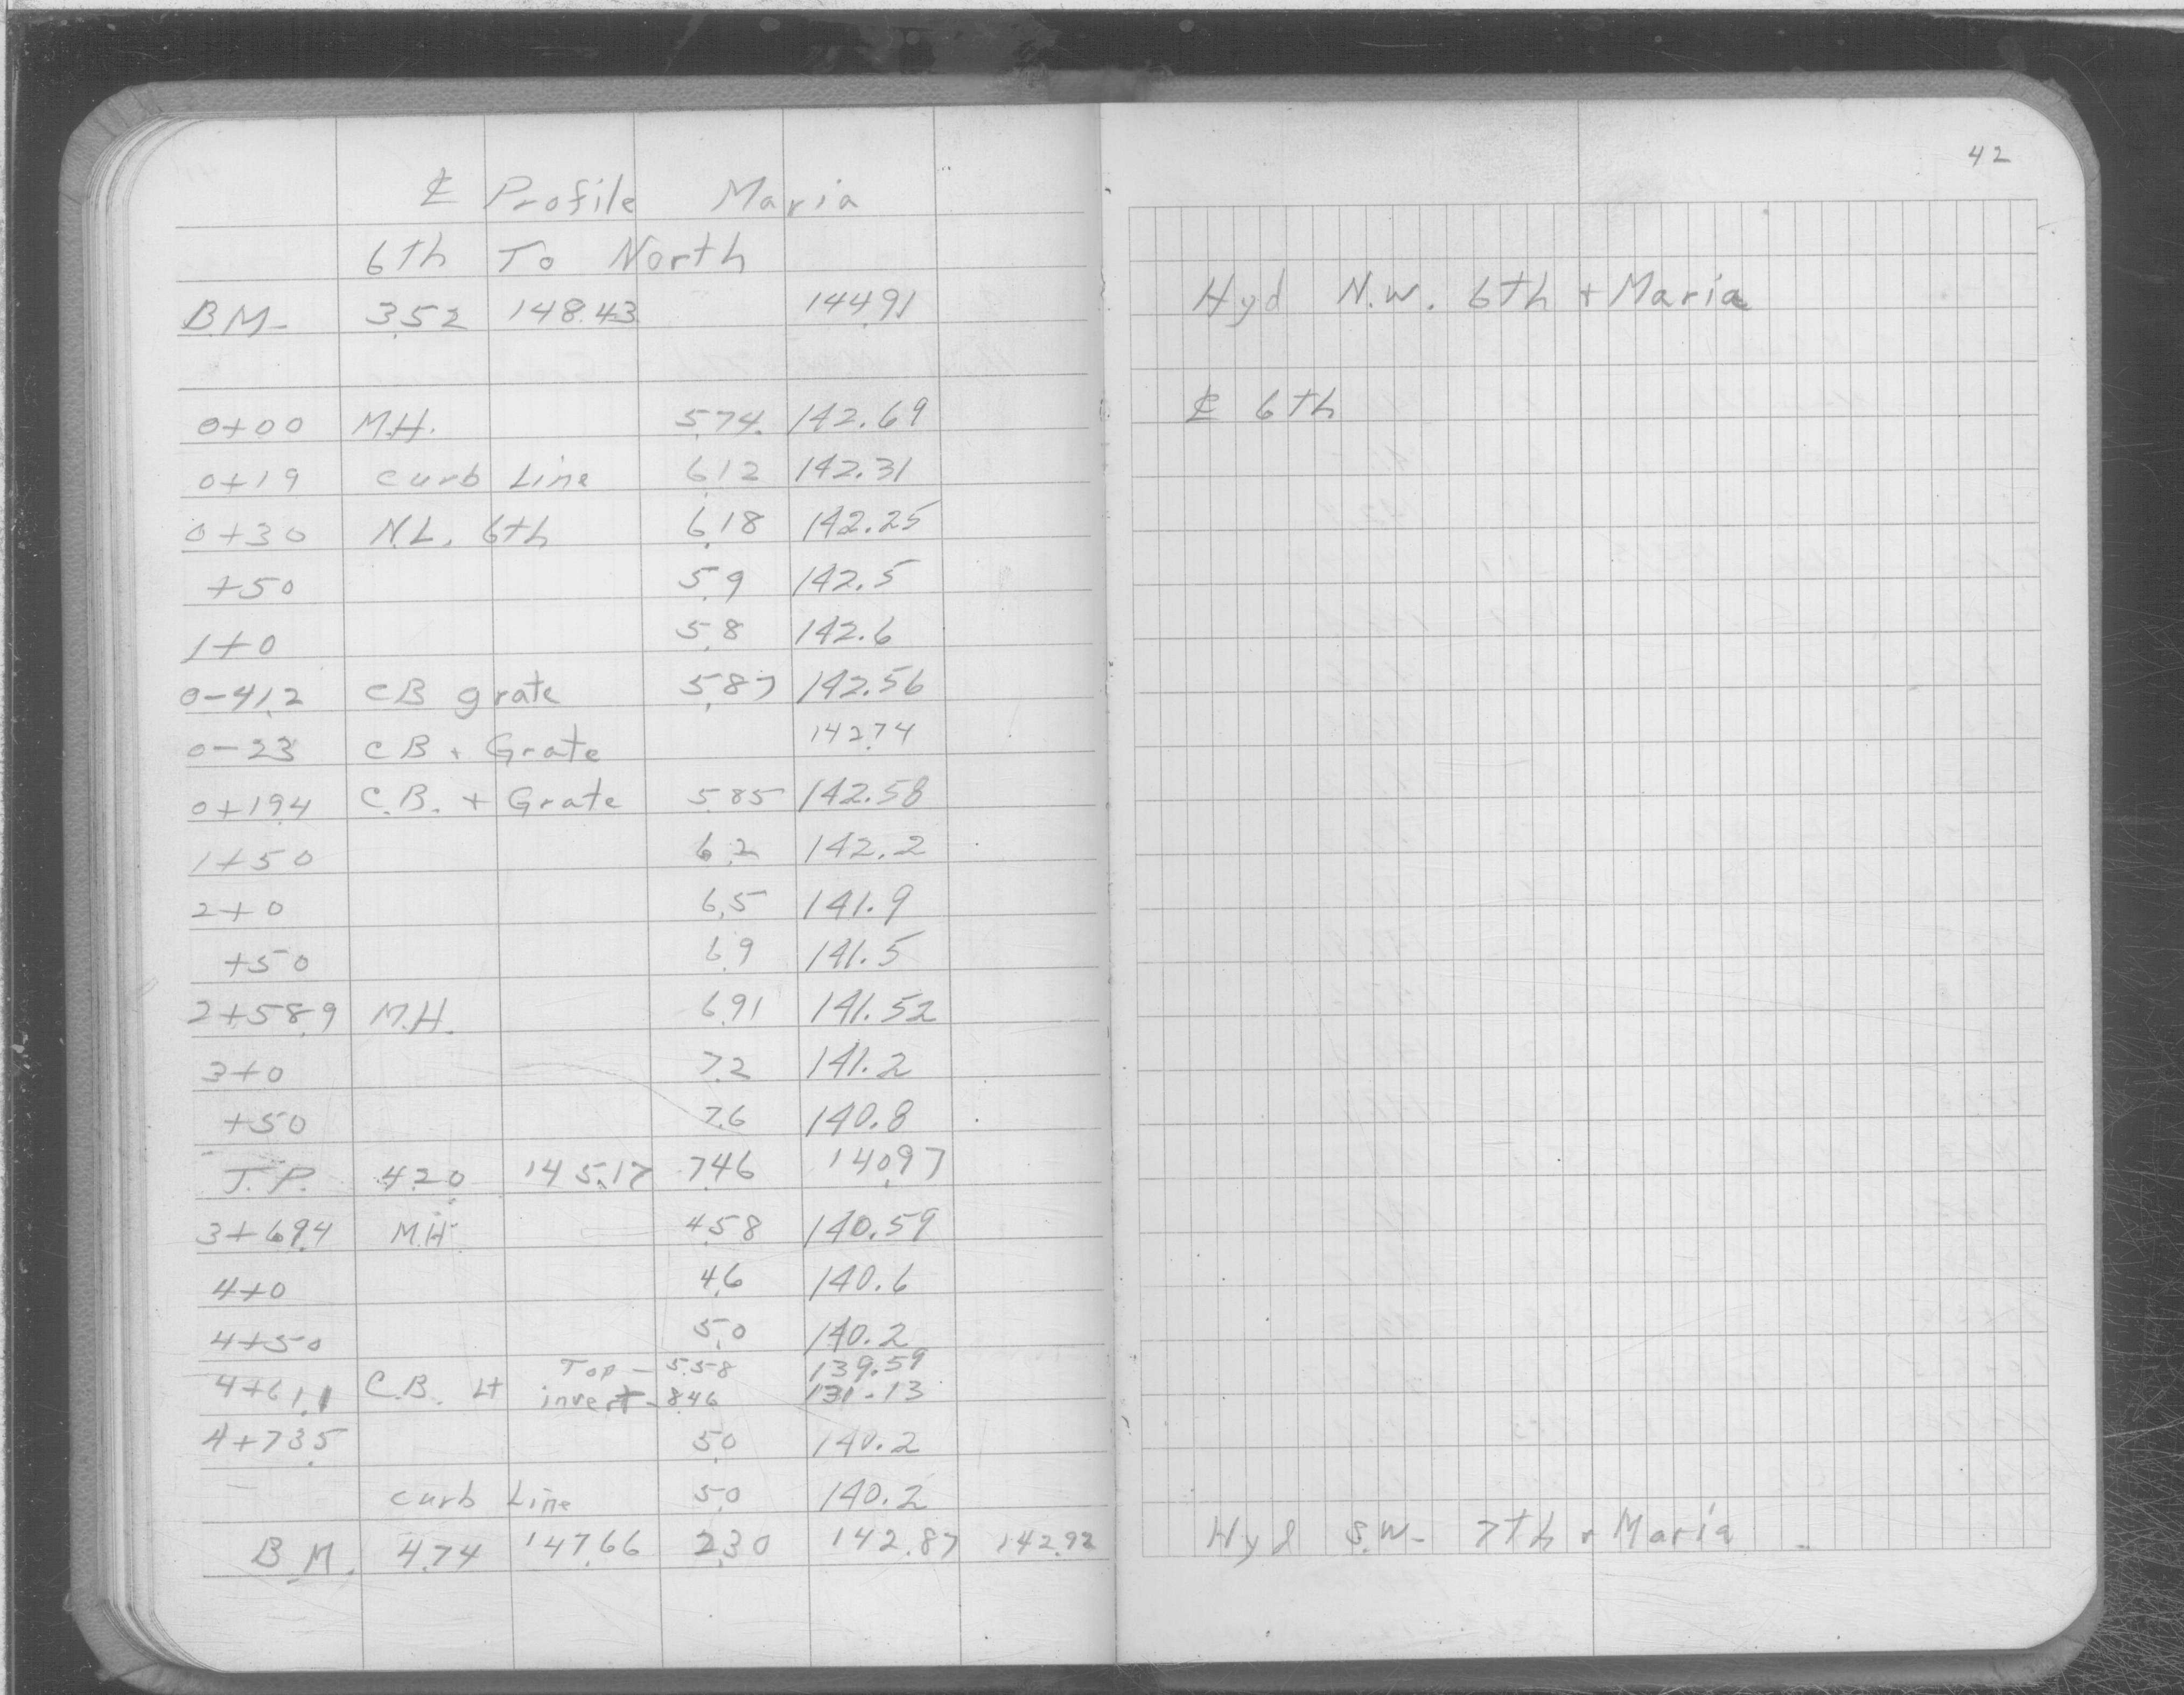 42
℄ Profile Maria
6th To North
B.M. 3.52 148.43 144.91 Hyd N.W. 6th + Maria
0+00 M.H. 5.74 142.69 ℄ 6th
0+19 Curb Line 6.12 142.31
0+30 N.L. 6th 6.18 142.25
+50 5.9 142.5
1+0 5.8 142.6
0-41.2 CB grate 5.87 142.56
0-23 CB + Grate 142.74
0+19.4 C.B. + Grate 5.85 142.58
1+50 6.2 142.2
2+0 6.5 141.9
+50 6.9 141.5
2+58.9 M.H. 6.91 141.52
3+0 7.2 141.2
+50 7.6 140.8
T.P. 4.20 145.17 7.46 140.97
3+69.4 M.H. 4.58 140.59
4+0 4.6 140.6
4+50 5.0 140.2
Top - 5.58 139.59
4+61.1 C.B. Lt invert - 8.46 131.13
4+73.5 5.0 140.2
Curb Line 5.0 140.2
B.M. 4.74 147.66 2.30 142.87 142.92 Hyd S.W. 7th + Maria